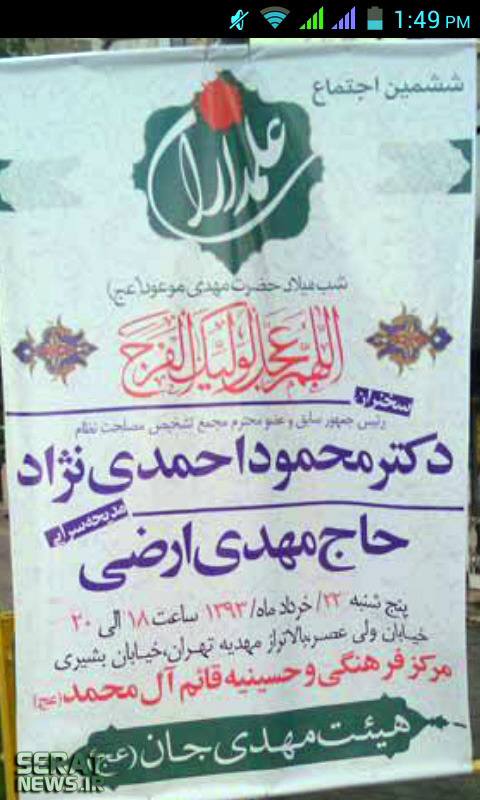 1:49 PM
ششمین اجتماع
علمداران
شب میلاد حضرت مهدی موعود(عج)
اللهم عجل لولیک الفرج
سخنران
رئیس جمهور سابق و عضو محترم مجمع تشخیص مصلحت نظام
دکتر محمود احمدی نژاد
مدیحه سرایی
حاج مهدی ارضی
پنج شنبه ۲۲/ خرداد ماه/ ۱۳۹۳ ساعت ۱۸ الی ۲۰
خیابان ولی عصر،بالاتراز مهدیه تهران،خیابان بشیری
مرکز فرهنگی و حسینیه قائم آل محمد (عج)
هیئت مهدی جان (عج)
SERAT
NEWS.IR